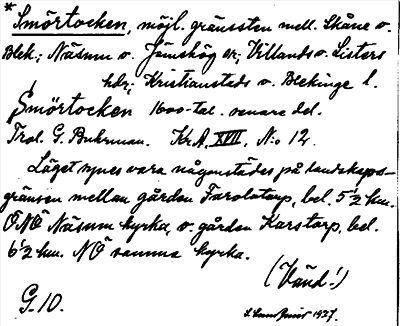 * Smörtocken, möjl. gränssten mell. Skåne o.
Blek.; Näsum o. Jämshög sn; Villands o. Listers
hdr; Kristianstads o. Blekinge l.
Smörtocken 1600-tal. senare del.
Trol. G. Buhrman. Kr.A. XVII, N:o 12.
Läget synes vara någonstädes på landskaps-
gränsen mellan gården Farolstorp, bel. 5½ km.
ÖNÖ Näsum kyrka o. gården Karstorp, bel.
6½ km. NÖ samma kyrka.
(Vänd!)
G. 10.
1937.